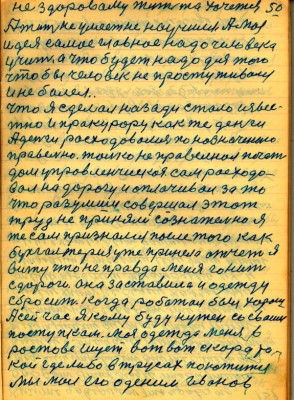 не здоровому жить та хочется 50
А жить не умеет не научился А моя
идея самое главное надо человека
учить, а что будет надо для того
чтобы человек не простуживался
и не болел.
что я сделал назади стало извес-
тно и пракурору как те деньги
А деньги расходовался по назначению
правельно. только не правельноя
дом управленческая сам расходо-
вал на дорогу и оплачивал за то
что разумши совершал этот
труд не приняли сознательно я
те сам признался после того как
бухгалтерия уже приняла отчет я
вижу что не правда меня гонит
с дороги она заставила и одежду
сбросить. когда работал был хорош
А сей час я кому буду нужен со своими
поступками. Моя одежда меня в
ростове ищет вот вот скоро та-
кой где либо в трусах покажится
мы мол его оденим Иванов